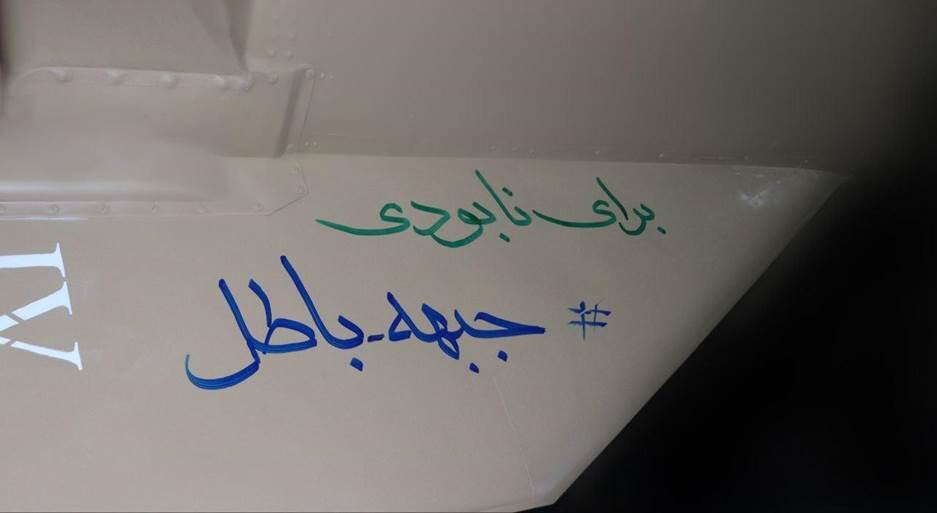 برای نابودی
#جبهه_باطل
IV